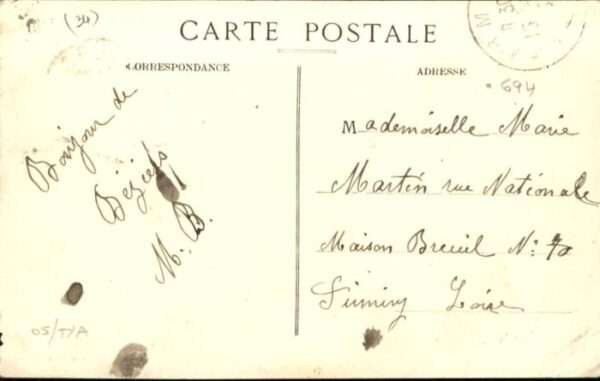 (34)
CARTE POSTALE
CORRESPONDANCE
ADRESSE
694
Bonjour de
Béziers
M. B.
Mademoiselle Marie
Martin rue Nationale
Maison Breuil N:
Firminy Loire
05/TYA